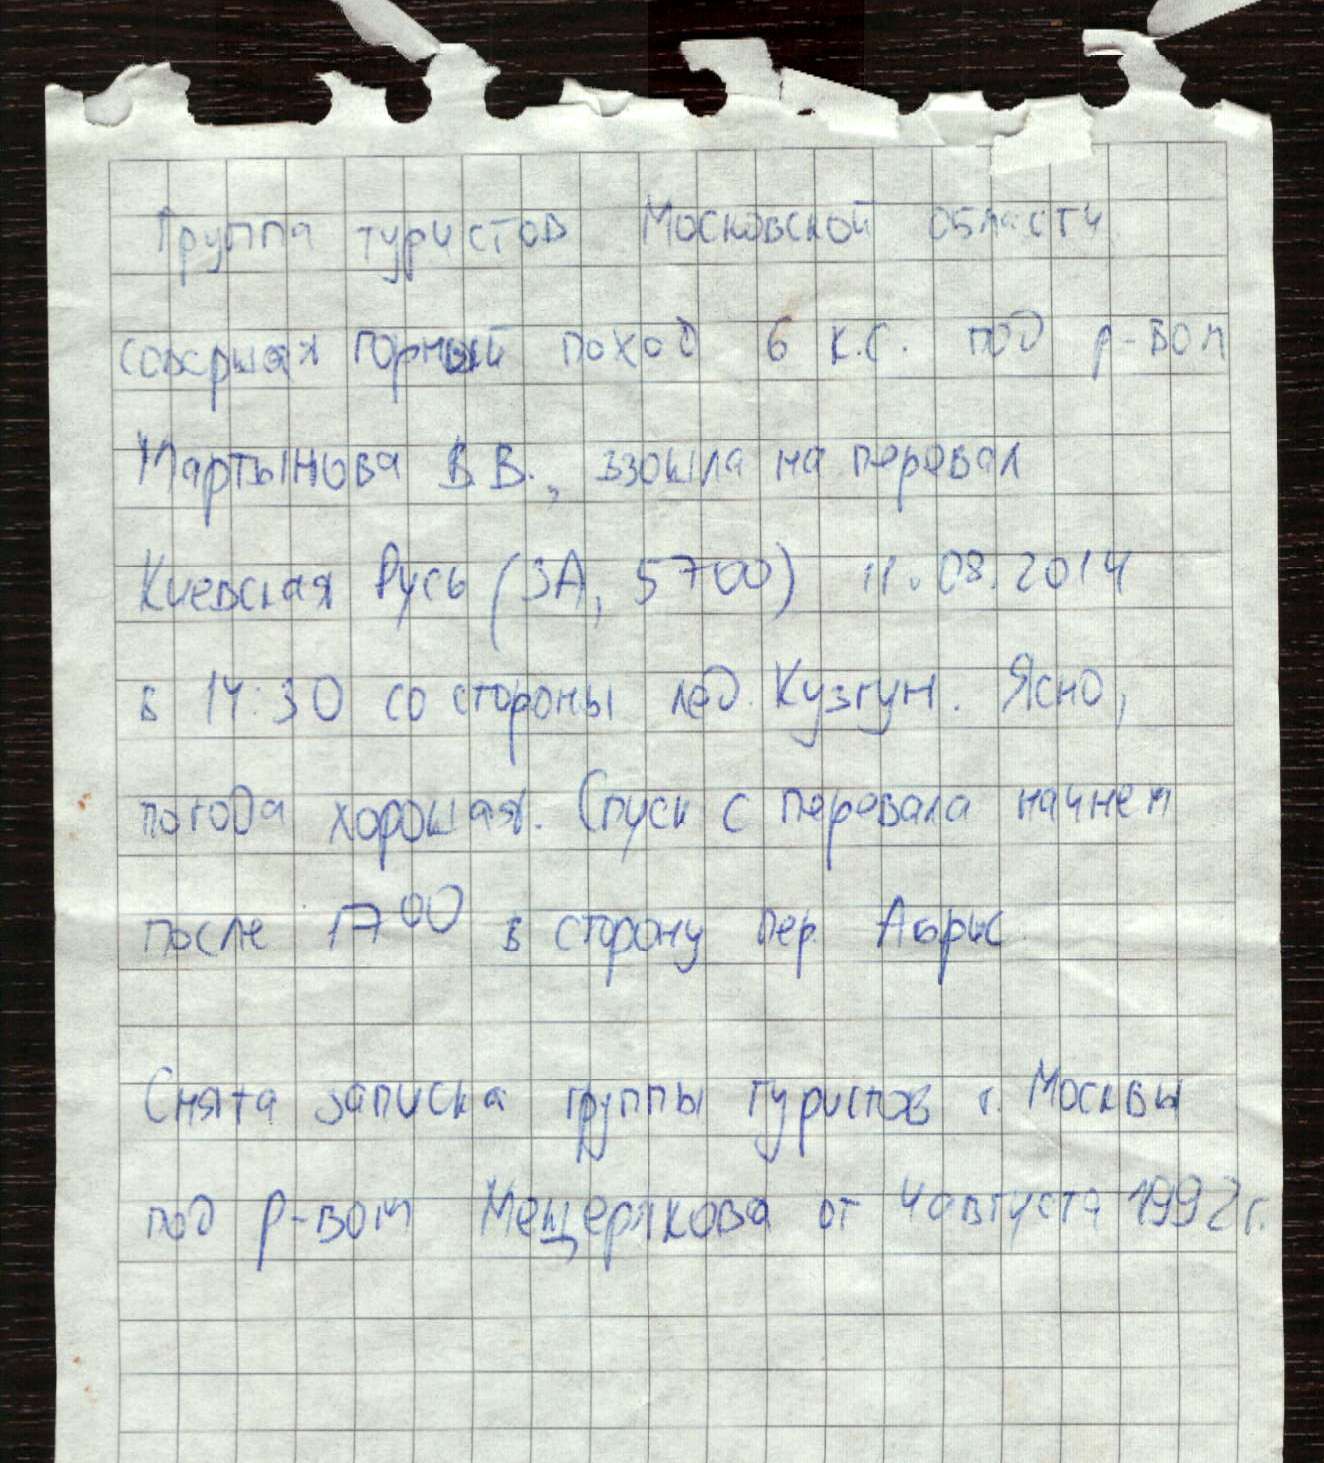 Группа туристов Московской области
совершая горный поход 6 к.с. под р-вом
Мартынова В.В., взошла на перевал
Киевская Русь (3А, 5700) 11.08.2014
в 14:30 со стороны лед. Кузгун. Ясно,
погода хорошая. Спуск с перевала начнем
после 17⁰⁰ в сторону пер.
Снята записка группы туристов г. Москвы
под р-вом Мещерякова от 4 августа 1992г.